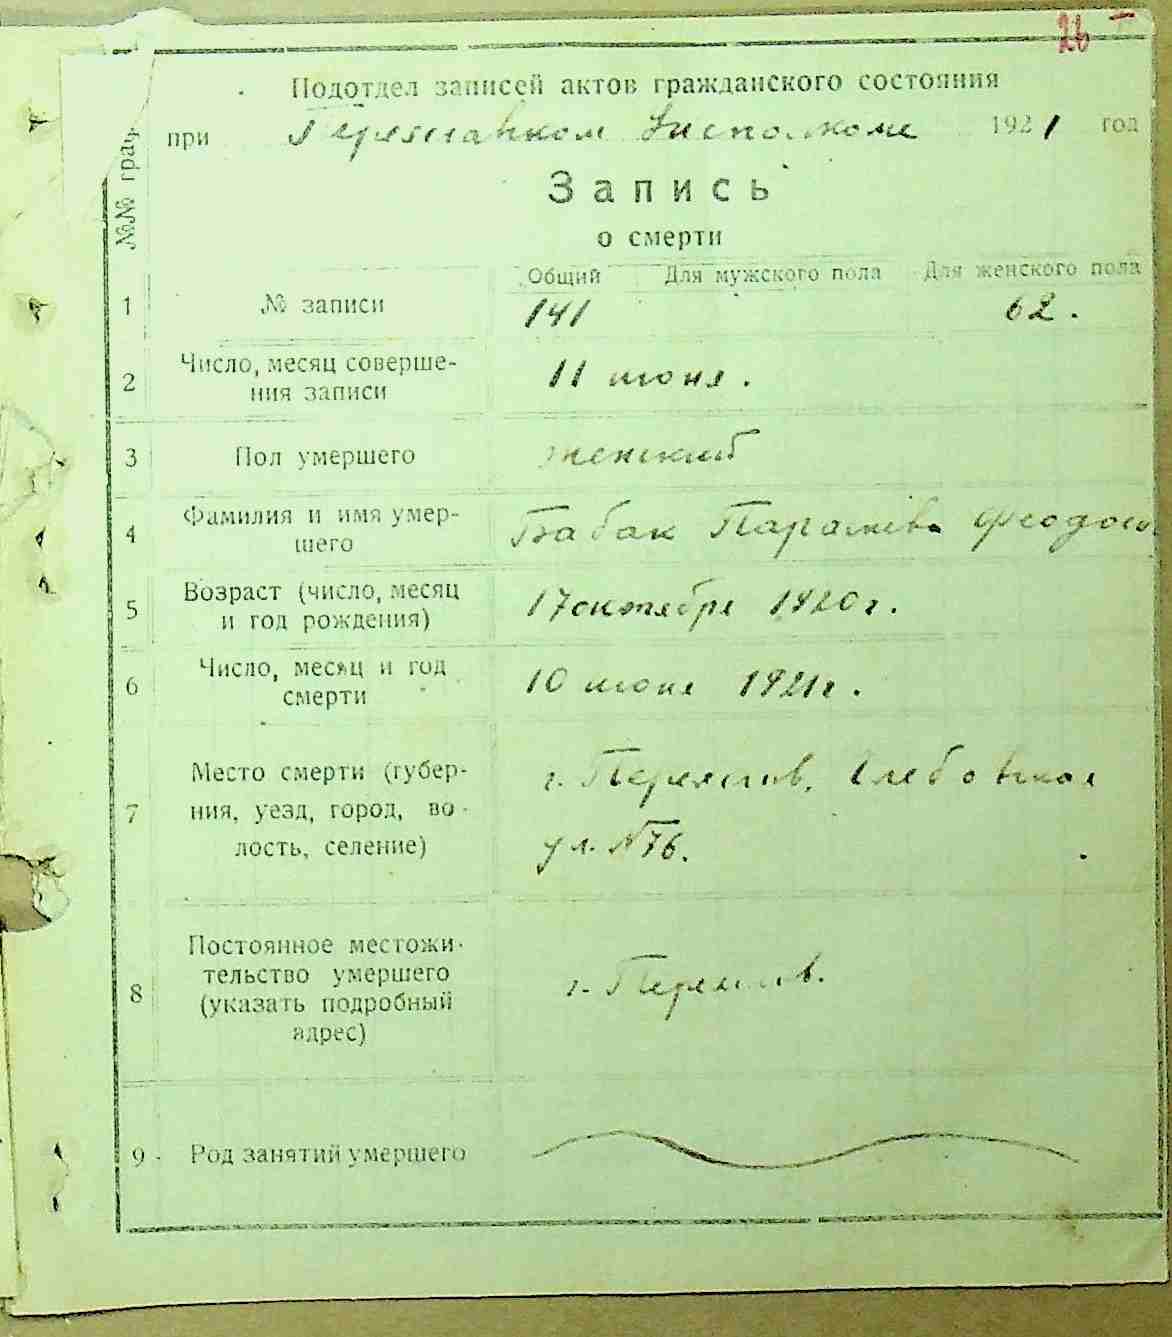 26
Подотдел записей актов гражданского состояния
при Переяславском Исполкоме 1921 год
Запись
о смерти
№№ граф
Общий Для мужского пола Для женского пола
1 № записи 141 62.
2 Число, месяц соверше-
ния записи 11 июня.
3 Пол умершего женский
4 Фамилия и имя умер-
шего Бабак Параскева
5 Возраст (число, месяц
и год рождения) 17 октября 1920 г.
6 Число, месяц и год
смерти 10 июня 1921 г.
7 Место смерти (губер-
ния, уезд, город, во-
лость, селение) г. Переяслав,
ул. №76.
8 Постоянное местожи-
тельство умершего
(указать подробный
адрес) г. Переяслав.
9 Род занятий умершего